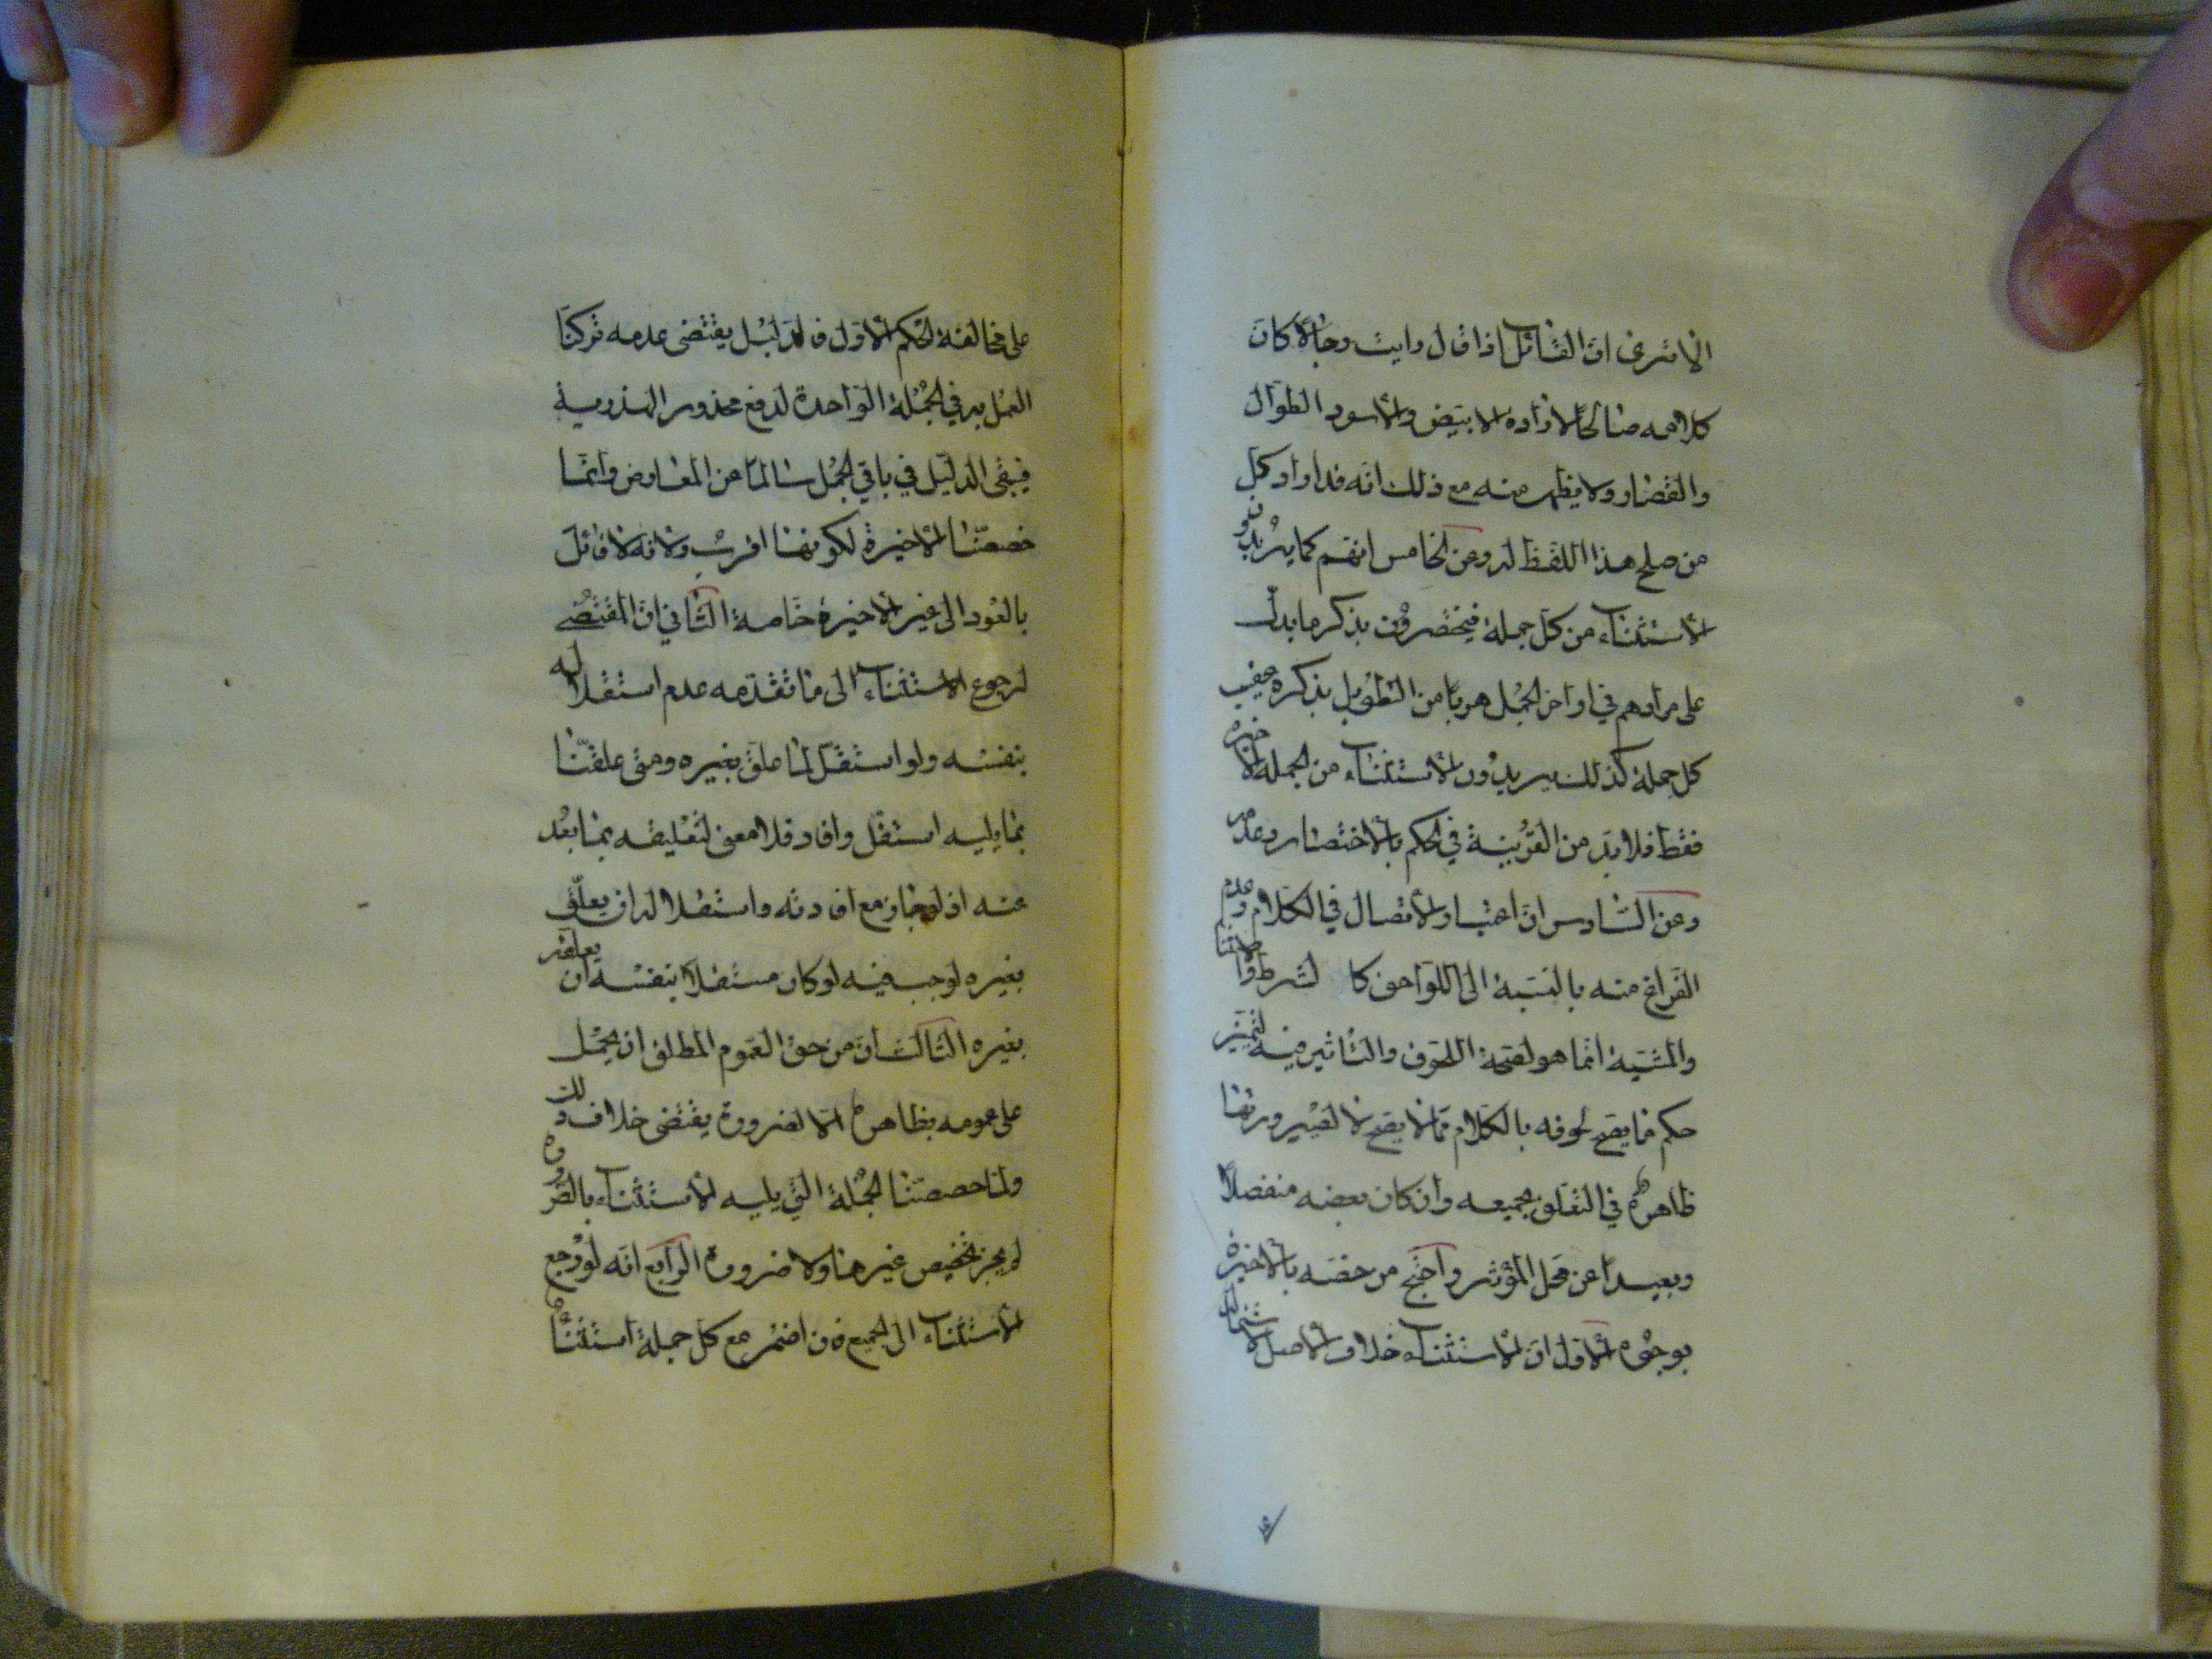 الا ترى ان القائل اذا قال رايت رجالا كان
كلامه صالحا لارادة الابيض والاسود الطوال
والقصار ولا يظهر منه مع ذلك انه قد اراد كل
من صلح هذا اللفظ له وعن الخامس انهم كما يريدون
الاستثناء من كل جملة فيختصرون بذكر ما يدل
على مرادهم في اواخر الجمل هربا من التطويل بذكره عقيب
كل جملة كذلك يريدون الاستثناء من الجملة الاخيرة
فقط فلا بد من القرينة في الحكم بالاختصار وعدمه
وعن السادس ان اعتبار الاتصال في الكلام وعدم
الفراغ منه بالنسبة الى اللواحق كا لشرط والاستثناء
والمشية انما هو لصحة اللحوق والتاثير فيه لتميز
حكم ما يصح لحوقه بالكلام مما لا يصح لا لصيرورتها
ظاهرة في التعلق بجميعه وان كان بعضه منفصلا
وبعيدا عن محل المؤثر واحتج من خصه بالاخيرة
بوجوه الاول ان الاستثناء خلاف الاصل لاشتماله
على مخالفة الحكم الاول فالدليل يقتضى عدمه تركنا
العمل به في الجملة الواحدة لدفع محذور الهذرية
فيبقى الدليل في باقي الجمل سالما عن المعارض وانما
خصصنا الاخيرة لكونها اقرب ولانه لا قائل
بالعود الى غير الاخيرة خاصة الثاني ان المقتضى
لرجوع الاستثناء الى ما تقدمه عدم استقلاله
بنفسه ولو استقل لما علق بغيره ومتى علقنا
بما يليه استقل وافاد فلا معنى لتعليقه بما بعد
عنه اذ لو جاز مع افادته واستقلاله ان يعلق
بغيره لوجب فيه لو كان مستقلا بنفسه ان يعلقه
بغيره الثالث ان من حق العموم المطلق ان يحمل
على عمومه بظاهره الا لضرورة يقتضى خلاف ذلك
ولما خصصنا الجملة التي يليه الاستثناء بالضرورة
لم يجز تخصيص غيرها ولا ضرورة الرابع انه لو رجع
الاستثناء الى الجميع فان اضمر مع كل جملة استثناء